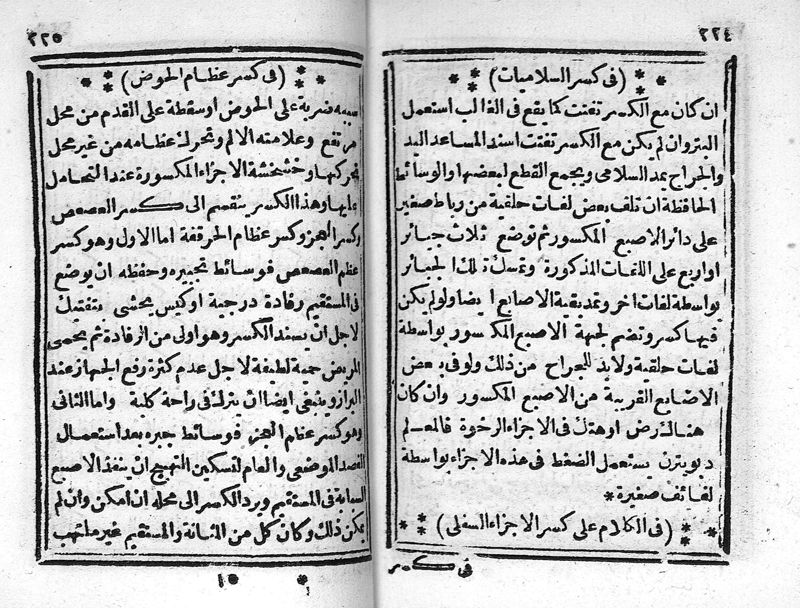 ٢٢٤
(فى كسر السلاميات)
ان كان مع الكسر تفتت كما يقع فى القالب استعمل
البتر وان لم يكن مع الكسر تفتت اسند المساعد اليد
والجراح يمد السلامى ويجمع القطع لبعضها والوسائط
الحافظة ان تلف بعض لفات حلقية من رباط صغير
على دائر الاصبع المكسور ثم توضع ثلاث جبائر
او اربع على اللفات المذكورة وتمسك تلك الجبائر
بواسطة لفات اخر وتمد بقية الاصابع ايضا ولو لم يكن
فيها كسر وتضم لجهة الاصبع المكسور بواسطة
لفات حلقية ولابد للجراح من ذلك ولو فى بعض
الاصابع القريبة من الاصبع المكسور وان كان
هناك رض او هتك فى الاجزاء الرخوة فالمعلم
دبويترن يستعمل الضغط فى هذه الاجزاء بواسطة
لفائف صغيرة *
(فى الكلام على كسر الاجزاء السفلى)
فى كسر
٢٢٥
(فى كسر عظام الحوض)
سببه ضربة على الحوض او سقطة على القدم من محل
مرتفع وعلامته الالم وتحرك عظامه من غير محل
تحركها وخشخشة الاجزاء المكسورة عند التحامل
عليها وهذا الكسر ينقسم الى كسر العصعص
وكسر العجز وكسر عظام الحرقفة اما الاول وهو كسر
عظم العصعص فوسائط تجبيره وحفظه ان يوضع
فى المستقيم رفادة درجية او كيس يحشى بتفتيك
لاجل ان يسند الكسر وهو اولى من الرفادة ثم يحمى
المريض حمية لطيفة لاجل عدم كثرة رفع الجهاز عند
البراز وينبغى ايضا ان يترك فى راحة كلية واما الثانى
وهو كسر عظام العجز فوسائط جبره بعد استعمال
الفصد الموضعى والعام لتسكين التهيج ان ينفذ الاصبع
السبابة فى المستقيم ويرد الكسر الى محله ان امكن وان لم
يمكن ذلك وكان كل من المثانة والمستقيم غير ملتهب
١٥